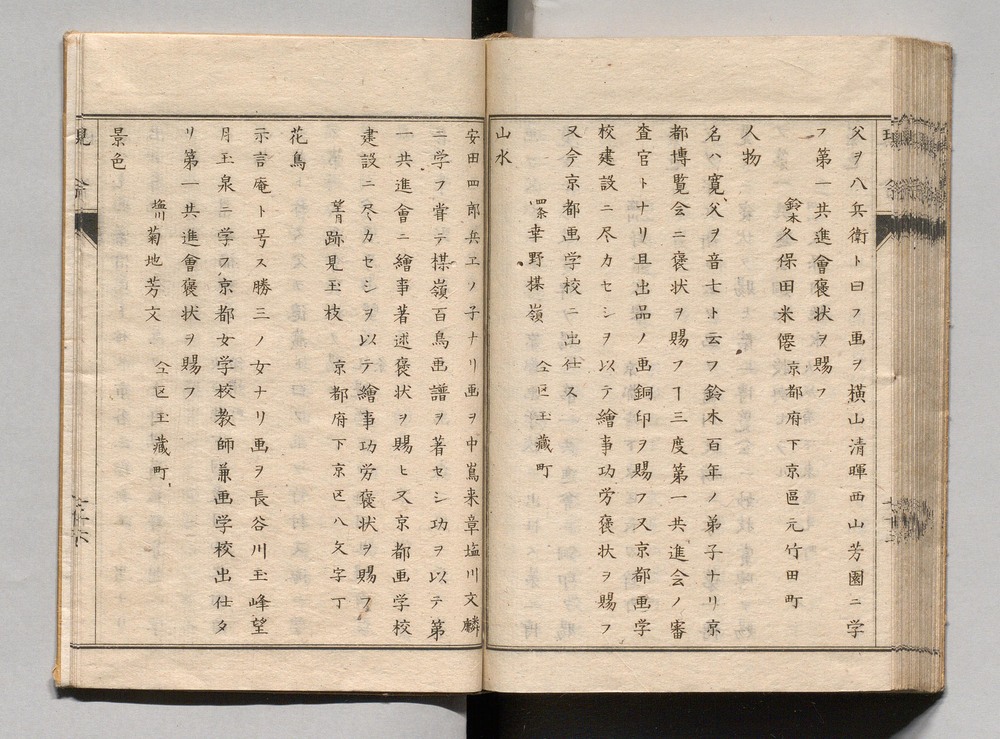 父ヲ八兵衛ト曰フ画ヲ横山清暉西山芳園ニ学
フ第一共進會褒状ヲ賜フ
鈴木久保田米僊 京都府下京區元竹田町
人物
名ハ寛父ヲ音七ト云フ鈴木百年ノ弟子ナリ京
都博覧会ニ褒状ヲ賜フヿ三度第一共進会ノ審
査官トナリ且出品ノ画銅印ヲ賜フ又京都画学
校建設ニ尽力セシヲ以テ繪事功労褒状ヲ賜フ
又今京都画学校ニ出仕ス
四条幸野楳嶺 仝区玉藏町
山水
安田四郎兵ヱノ子ナリ画ヲ中嶌来章塩川文麟
ニ学フ嘗テ楳嶺百鳥画譜ヲ著セシ功ヲ以テ第
一共進會ニ繪事著述褒状ヲ賜ヒ又京都画学校
建設ニ尽力セシヲ以テ繪事功労褒状ヲ賜フ
望月跡見玉枝 京都府下京区八文字丁
花鳥
示言庵ト号ス勝三ノ女ナリ画ヲ長谷川玉峰望
月玉泉ニ学フ京都女学校教師兼画学校出仕タ
リ第一共進會褒状ヲ賜フ
塩川菊地芳文 仝区玉藏町
景色